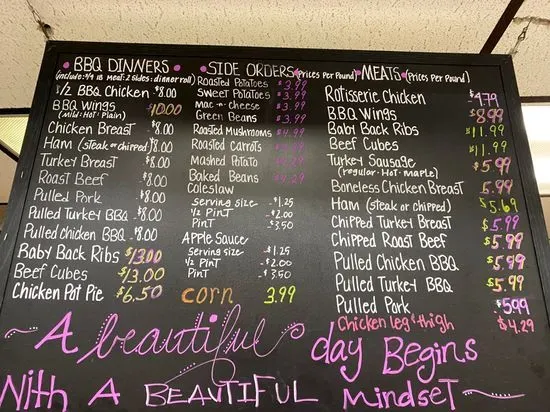 BBQ DINNERS
(include: 1/4 lb meat: 2 sides: dinner roll)
1/2 BBQ Chicken - $8.00
BBQ Wings $10.00
(mild: Hot: Plain)
Chicken Breast - $8.00
Ham (steak or chipped) $8.00
Turkey Breast - $8.00
Roast Beef $8.00
Pulled Pork - $8.00
Pulled Turkey BBQ - $8.00
Pulled chicken BBQ - $8.00
Baby Back Ribs $13.00
Beef Cubes $13.00
Chicken Pot Pie $6.50
SIDE ORDERS (Prices Per Pound)
Roasted Potatoes $3.99
Sweet Potatoes $3.99
Mac-n-cheese $3.99
Green Beans $3.99
Roasted Mushrooms $4.99
Roasted Carrots
Mashed Potato
Baked Beans $4.29
Coleslaw
serving size - $1.25
1/2 Pint - $2.00
Pint - $3.50
Apple Sauce
serving size - $1.25
1/2 Pint - $2.00
Pint - $3.50
corn 3.99
MEATS (Prices Per Pound)
Rotisserie Chicken $4.79
B.B.Q Wings $8.99
Baby Back Ribs $11.99
Beef Cubes $11.99
Turkey Sausage $5.99
(regular · Hot · maple)
Boneless Chicken Breast $5.99
Ham (steak or chipped) $5.69
Chipped Turkey Breast $5.99
Chipped Roast Beef $5.99
Pulled Chicken BBQ $5.99
Pulled Turkey BBQ $5.99
Pulled Pork $5.99
Chicken leg & thigh $4.29
A beautiful day Begins
With A BEAUTIFUL mindset